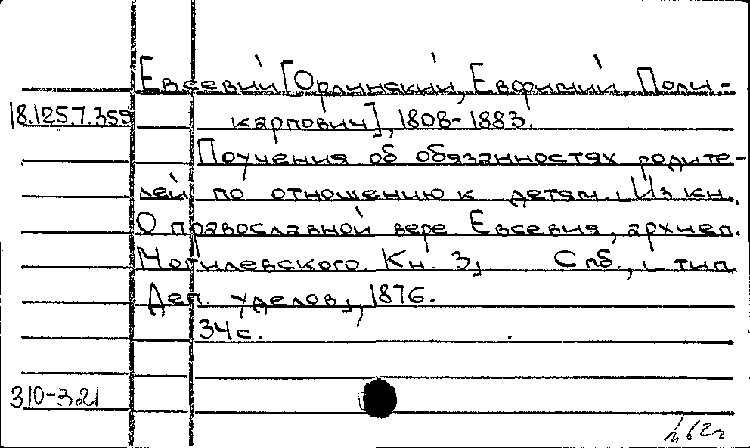 Евсевий [Орлинский, Евфимий Поли-
18.1257.355 карпович], 1808-1883.
Поучения об обязанностях родите-
лей по отношению к детям. [Из кн.
О православной вере Евсевия, архиеп.
Могилевского. Кн. 3] Спб., [тип
Деп. уделов], 1876.
34 с.
310-321